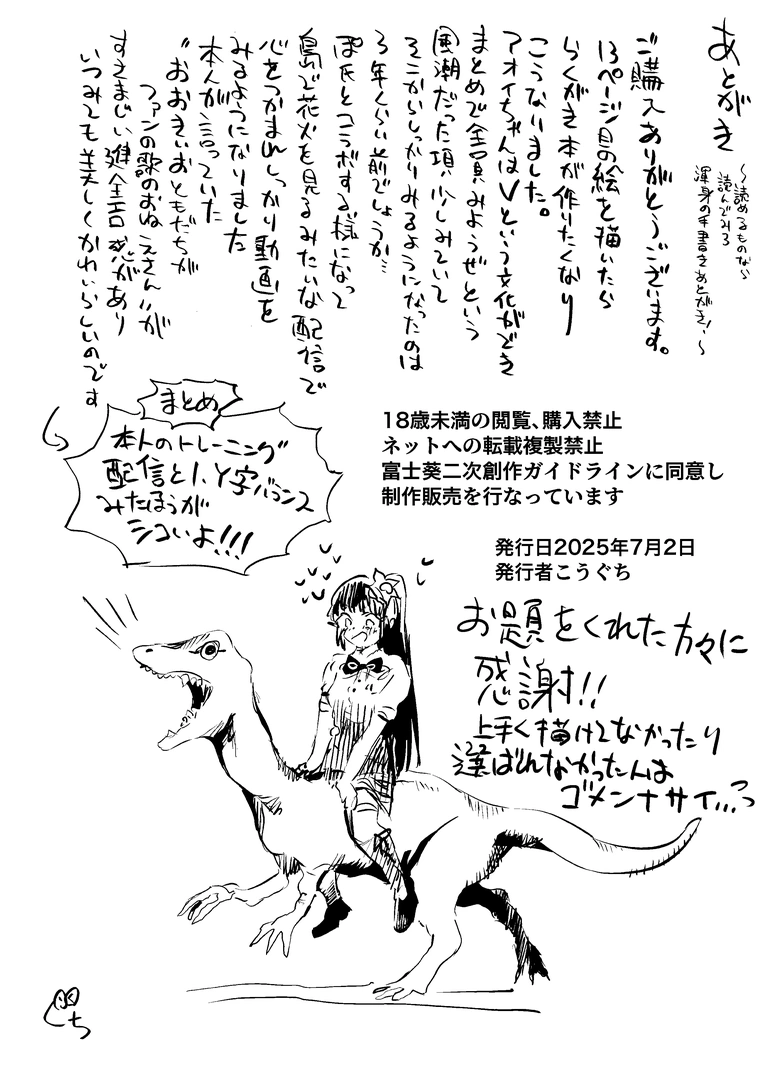 あとがき
〜読めるものなら
読んでみろ
渾身の手書きあとがき!〜
ご購入ありがとうございます。
13ページ目の絵を描いたら
らくがき本が作りたくなり
こうなりました。
アオイちゃんはVという文化ができ
まとめて全員みようぜという
風潮だった頃少しみていて
そこからしっかりみるようになったのは
3年くらい前でしょうか…
ぽ氏とコラボする様になって
島で花火を見るみたいな配信で
心をつかまれしっかり動画を
みるようになりました
本人が言っていた
"おおきいおともだちが
ファンの歌のおねえさん"が
すさまじい健全エロ感があり
いつみても美しくかわいらしいのです
まとめ
本人のトレーニング
配信とI、Y字バランス
みたほうが
シコいよ!!!
18歳未満の閲覧、購入禁止
ネットへの転載複製禁止
富士葵二次創作ガイドラインに同意し
制作販売を行なっています
発行日2025年7月2日
発行者こうぐち
お題をくれた方々に
感謝!!
上手く描けてなかったり
選ばれなかったんは
ゴメンナサイ…っ